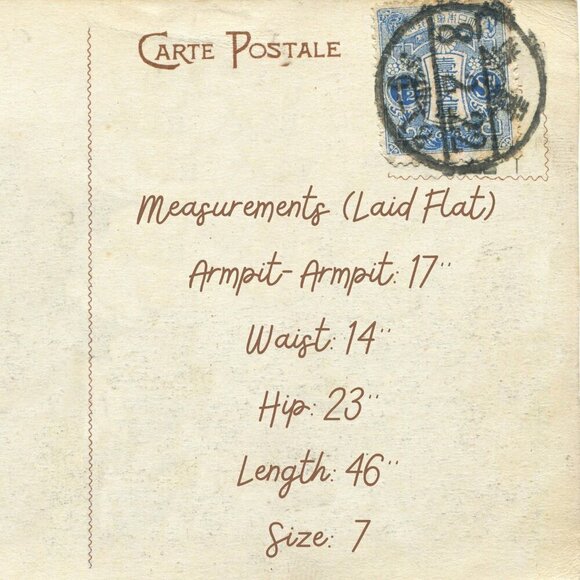 CARTE POSTALE
Measurements (Laid Flat)
Armpit-Armpit: 17''
Waist: 14''
Hip: 23''
Length: 46''
Size: 7